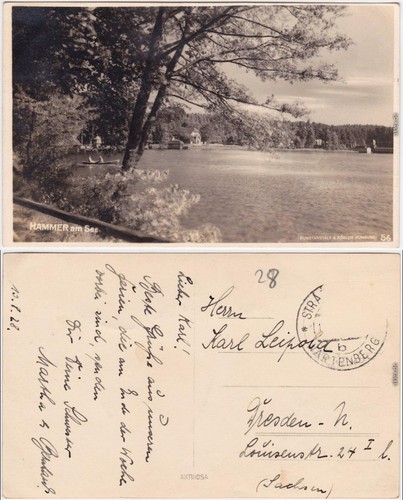 HAMMER am See.
56
28
13.8.28.
Lieber Karl!
Beste Grüße aus unseren
Ferien, die am Ende der Woche
vorbei sind, senden
Dir Deine Schwester
Martha u.
Herrn
Karl Leipold
Dresden - N.
Louisenstr. 24 I l.
(Sachsen)
STRÁ
b
WARTENBERG